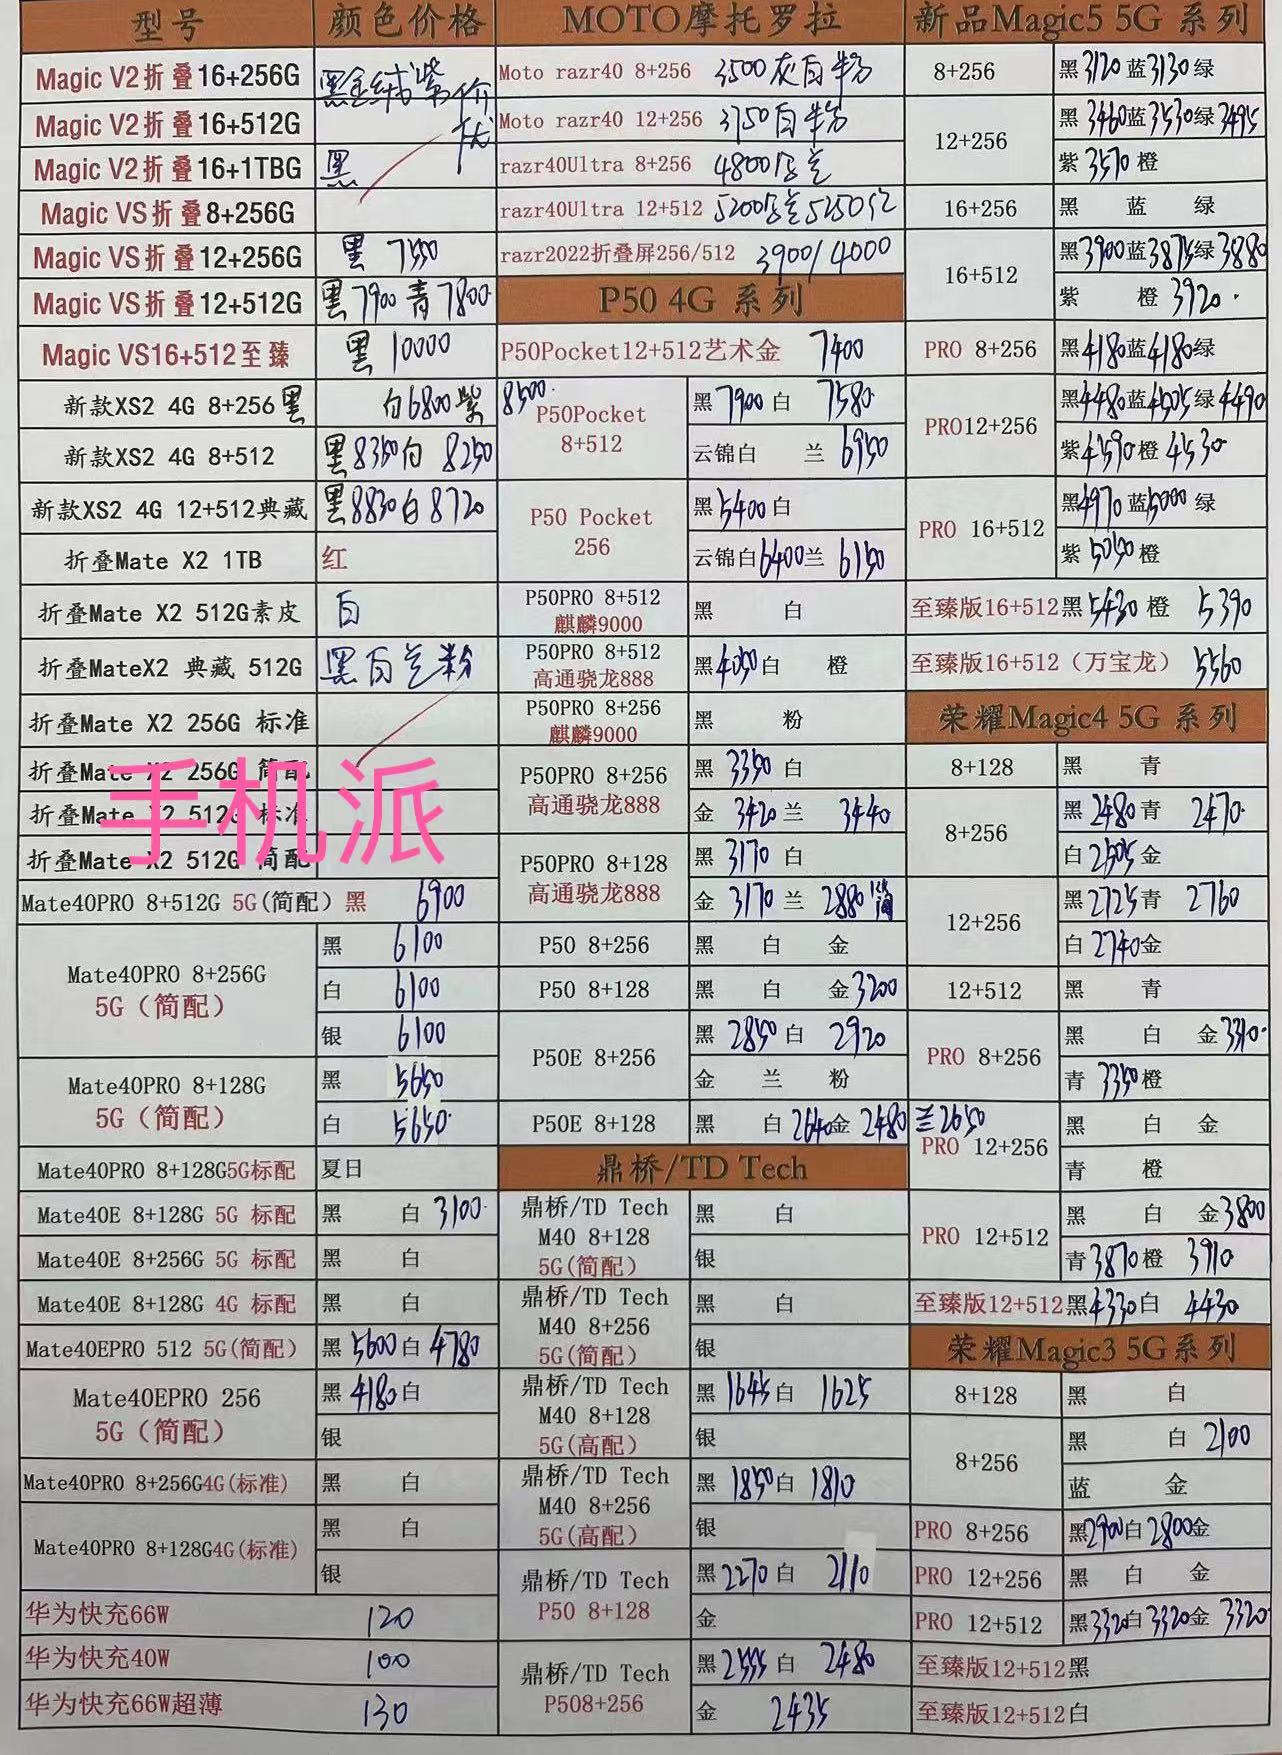 型号 颜色价格
Magic V2折叠16+256G 黑金绒紫价优
Magic V2折叠16+512G
Magic V2折叠16+1TBG 黑
Magic VS折叠8+256G
Magic VS折叠12+256G 黑
Magic VS折叠12+512G 黑7900 青7800
Magic VS16+512至臻 黑 10000
新款XS2 4G 8+256 黑 白6800 紫 8500
新款XS2 4G 8+512 黑8350白 8250
新款XS2 4G 12+512典藏 黑8830白8720
折叠Mate X2 1TB 红
折叠Mate X2 512G素皮 白
折叠MateX2 典藏 512G 黑白兰粉
折叠Mate X2 256G 标准
折叠Mate X2 256G 简配
折叠Mate X2 512G 标准
折叠Mate X2 512G 简配
手机派
Mate40PRO 8+512G 5G(简配) 黑 6900
Mate40PRO 8+256G
5G(简配)
黑 6100
白 6100
银 6100
Mate40PRO 8+128G
5G(简配)
黑 5650
白 5650
Mate40PRO 8+128G5G标配 夏日
Mate40E 8+128G 5G 标配 黑 白 3100
Mate40E 8+256G 5G 标配 黑 白
Mate40E 8+128G 4G 标配 黑 白
Mate40EPRO 512 5G(简配) 黑 5600白 4780
Mate40EPRO 256
5G(简配)
黑 4180白
银
Mate40PRO 8+256G4G(标准) 黑 白
Mate40PRO 8+128G4G(标准)
黑 白
银
华为快充66W 120
华为快充40W 100
华为快充66W超薄 130
MOTO摩托罗拉
Moto razr40 8+256 3500灰白粉
Moto razr40 12+256 3750白粉
razr40Ultra 8+256 4800
razr40Ultra 12+512 5200 5250红
razr2022折叠屏256/512 3900/4000
P50 4G 系列
P50Pocket12+512艺术金 7400
P50Pocket
8+512
黑 7900 白 7580
云锦白 兰 6950
P50 Pocket
256
黑5400白
云锦白6400兰 6150
P50PRO 8+512
麒麟9000
黑 白
P50PRO 8+512
高通骁龙888
黑4050白 橙
P50PRO 8+256
麒麟9000
黑 粉
P50PRO 8+256
高通骁龙888
黑 3350 白
金 3420 兰 3440
P50PRO 8+128
高通骁龙888
黑 3170 白
金 3170 兰 2880简
P50 8+256 黑 白 金
P50 8+128 黑 白 金3200
P50E 8+256
黑 2850白 2920
金 兰 粉
P50E 8+128 黑 白2640金 2480 兰2650
鼎桥/TD Tech
鼎桥/TD Tech
M40 8+128
5G(简配)
黑 白
银
鼎桥/TD Tech
M40 8+256
5G(简配)
黑 白
银
鼎桥/TD Tech
M40 8+128
5G(高配)
黑 1645白 1625
银
鼎桥/TD Tech
M40 8+256
5G(高配)
黑 1850白 1810
银
鼎桥/TD Tech
P50 8+128
黑2270白 2110
金
鼎桥/TD Tech
P508+256
黑2555白 2480
金 2435
新品Magic5 5G 系列
8+256 黑3120蓝3130绿
12+256
黑 3460蓝3530绿3495
紫3570橙
16+256 黑 蓝 绿
16+512
黑3900蓝3875绿3880
紫 橙 3920
PRO 8+256 黑4180蓝4180绿
PRO12+256
黑4480蓝4505绿4490
紫4590橙 4530
PRO 16+512
黑4970蓝5000绿
紫5050橙
至臻版16+512黑5430 橙 5390
至臻版16+512(万宝龙) 5560
荣耀Magic4 5G 系列
8+128 黑 青
8+256
黑2480青 2470
白2505金
12+256
黑2725青 2760
白2740金
12+512 黑 青
PRO 8+256
黑 白 金3310
青 3350橙
PRO 12+256
黑 白 金
青 橙
PRO 12+512
黑 白 金3800
青3870橙 3910
至臻版12+512黑4330白 4430
荣耀Magic3 5G系列
8+128 黑 白
8+256
黑 白 2100
蓝 金
PRO 8+256 黑2900白2800金
PRO 12+256 黑 白 金
PRO 12+512 黑3320白3320金 3320
至臻版12+512黑
至臻版12+512白